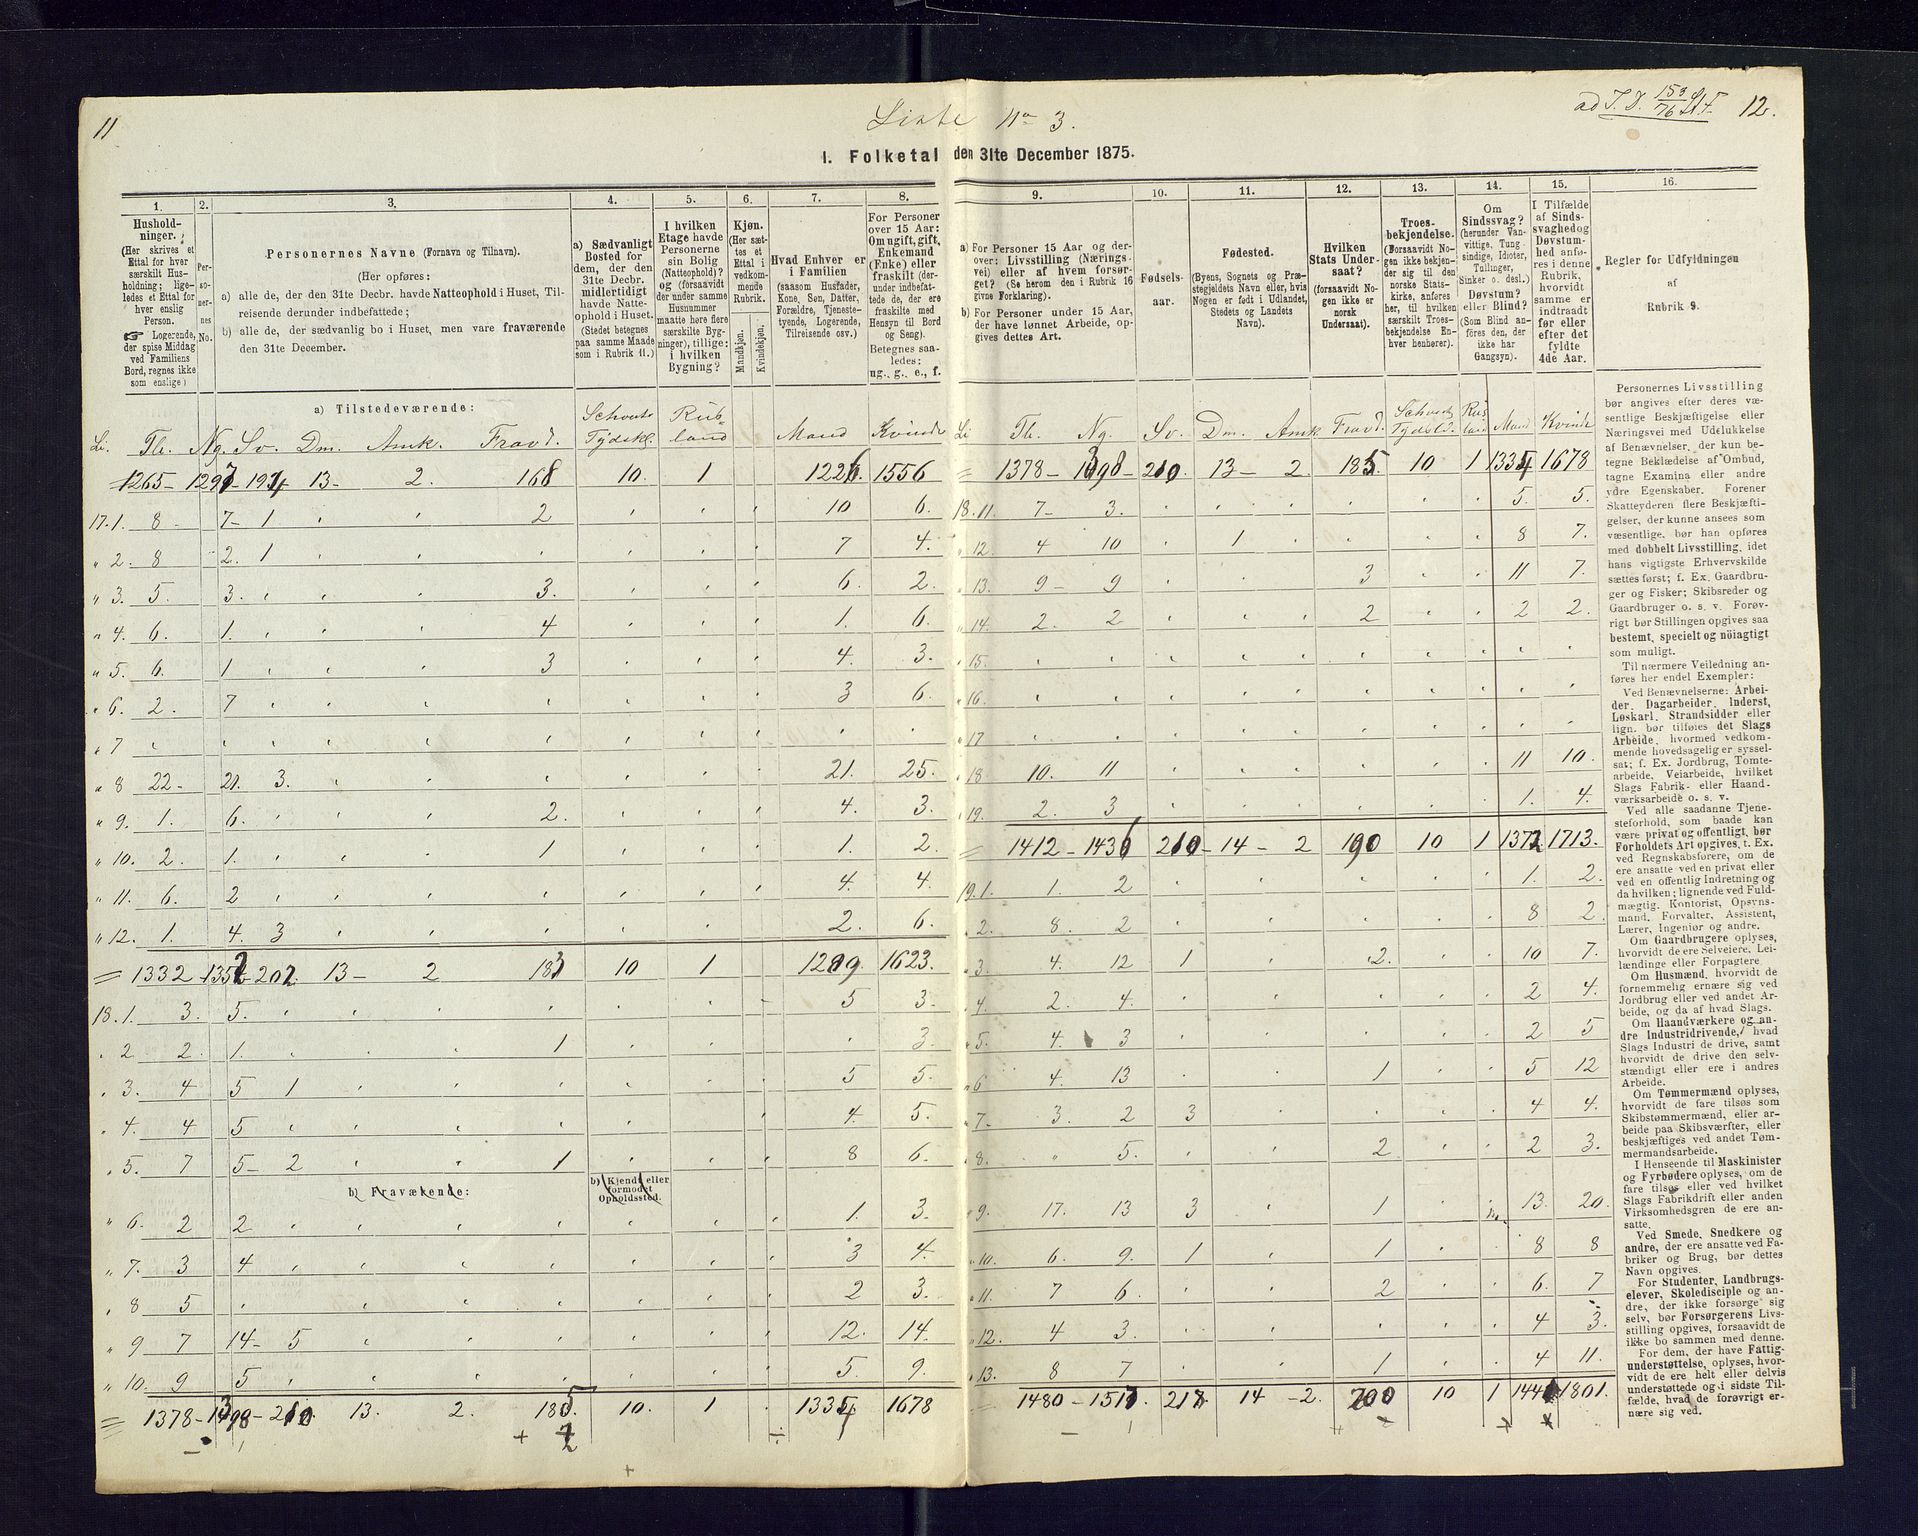 11
Liste No 3.
ad J. D. 153/76 StF 12.
1. Folketal den 31te December 1875.
1. 2. 3. 4. 5. 6. 7. 8. 9. 10. 11. 12. 13. 14. 15. 16.
Hushold-
ninger.
(Her skrives et
Ettal for hver
særskilt Hus-
holdning; lige-
ledes et Ettal for
hver enslig
Person.
☞ Logerende,
der spise Middag
ved Familiens
Bord, regnes ikke
som enslige)
Per-
so-
ner-
nes
No.
Personernes Navne (Fornavn og Tilnavn).
(Her opføres:
a) alle de, der den 31te Decbr. havde Natteophold i Huset, Til-
reisende derunder indbefattede;
b) alle de, der sædvanlig bo i Huset, men vare fraværende
den 31te December.
a) Sædvanligt
Bosted for
dem, der den
31te Decbr.
midlertidigt
havde Natte-
ophold i Huset.
(Stedet betegnes
paa samme Maade
som i Rubrik 11.)
I hvilken
Etage havde
Personerne
sin Bolig
(Natteophold)?
og (forsaavidt
der under samme
Husnummer
maatte høre flere
særskilte Byg-
ninger), tillige:
i hvilken
Bygning?
Kjøn.
(Her sæt-
tes et
Ettal i
vedkom-
mende
Rubrik.
Mandkjøn.
Kvindekjøn.
Hvad Enhver er
i Familien
(saasom Husfader,
Kone, Søn, Datter,
Forældre, Tjeneste-
tyende, Logerende,
Tilreisende osv.)
For Personer
over 15 Aar:
Om ugift, gift,
Enkemand
(Enke) eller
fraskilt (der-
under indbefat-
tede de, der ere
fraskilte med
Hensyn til Bord
og Seng).
Betegnes saa-
ledes:
ug., g., e., f.
a) For Personer 15 Aar og der-
over: Livsstilling (Nærings-
vei) eller af hvem forsør-
get? (Se herom den i Rubrik 16
givne Forklaring).
b) For Personer under 15 Aar,
der have lønnet Arbeide, op-
gives dettes Art.
Fødsels-
aar.
Fødested.
(Byens, Sognets og Præ-
stegjeldets Navn eller, hvis
Nogen er født i Udlandet,
Stedets og Landets
Navn).
Hvilken
Stats Under-
saat?
(forsaavidt No-
gen ikke er
norsk
Undersaat).
Troes-
bekjendelse.
(Forsaavidt No-
gen ikke bekjen-
der sig til den
norske Stats-
kirke, anføres
her, til hvilken
særskilt Troes-
bekjendelse En-
hver henhører).
Om
Sindssvag?
(herunder Van-
vittige, Tung-
sindige, Idioter,
Tullinger,
Sinker o. desl.)
Døvstum?
eller Blind?
(Som Blind an-
føres den, der
ikke har
Gangsyn).
I Tilfælde
af Sinds-
svaghed og
Døvstum-
hed anfø-
res i denne
Rubrik,
hvorvidt
samme er
indtraadt
før eller
efter det
fyldte
4de Aar.
Regler for Udfyldningen
af
Rubrik 9.
a) Tilstedeværende:
Li. Tb. Ng. Sv. Dm. Amk. Fravd. Schveits Tydskl. Rus land Mand Kvinde
1265 - 1297 - 194 13 - 2. 168 10. 1 1226. 1556
17.1. 8 7 - 1 2 10 6.
" 2. 8 2. 1 7 4.
" 3. 5. 3. 3. 6. 2.
" 4. 6. 1. 4 1. 6.
" 5. 6. 1 3 4. 3.
" 6. 2. 7 3 6.
" 7
" 8 22 - 21. 3. 21. 25.
" 9. 1. 6. 2. 4. 3.
" 10. 2 1. 1 1. 2.
" 11. 6. 2 4. 4.
" 12. 1. 4. 3 2. 6.
1332 - 1352 - 202. 13 - 2 183 10 1 1289. 1623.
18.1. 3. 5. 5 3.
2 2. 1. 1 3.
3. 4 5 1 5 5.
4. 4 5 4. 5.
5. 7 5 - 2 1 8 6.
b) Fraværende:
b) Kjendt eller
formodet
Opholdssted.
" 6. 2 2 1. 3.
" 7. 3 4 3 4.
8 5 2 3.
9 7 14 - 5 12. 14.
" 10. 9 5 5. 9.
1378 - 1398 - 210. 13. 2. 185 10. 1 1335 1678
Li Tb. Ng. Sv. Dm. Amk. Fravd. Schveits Tydskl. Rus land Mand Kvinde
1378 - 1398 - 210. 13 - 2. 185 10 1 1334 1678
18.11. 7 - 3. 5. 5.
" 12. 4 10 1 8 7.
" 13. 9 - 9 3 11 7.
" 14. 2. 2 2 2 2.
" 15.
" 16.
" 17
" 18 10. 11 11 10.
" 19. 2. 3 1. 4.
1412 - 1436 210 - 14 - 2 190 10 1 1372 1713.
19.1. 1. 2 1. 2.
2. 8. 2 8 2.
3. 4. 12 1 2. 10 7.
4. 2. 4. 2 4.
5. 4. 3 2 5
6 4. 13 1 5 12
7. 3. 2 3 4 4.
8. " 5. 2 2 3.
9. 17. 13 3 1 13. 20.
10. 6. 9. 1 1 8 8
11. 7 6. 2 6. 7
12. 4 3. 4 3.
13. 8 7 1 4 11.
1480 - 1517. 217. 14 - 2. 200 10 1 1441 1801.
Personernes Livsstilling
bør angives efter deres væ-
sentlige Beskjæftigelse eller
Næringsvei med Udelukkelse
af Benævnelser, der kun be-
tegne Beklædelse af Ombud,
tagne Examina eller andre
ydre Egenskaber. Forener
Skatteyderen flere Beskjæfti-
gelser, der kunne ansees som
væsentlige, bør han opføres
med dobbelt Livsstilling, idet
hans vigtigste Erhvervskilde
sættes først; f. Ex. Gaardbru-
ger og Fisker; Skibsreder og
Gaardbruger o. s. v. Forøv-
rigt bør Stillingen opgives saa
bestemt, specielt og nöiagtigt
som muligt.
Til nærmere Veiledning an-
føres her endel Exempler:
Ved Benævnelserne: Arbei-
der, Dagarbeider, Inderst,
Løskarl, Strandsidder eller
lign. bør tilføies det Slags
Arbeide, hvormed vedkom-
mende hovedsagelig er syssel-
sat; f. Ex. Jordbrug, Tomte-
arbeide, Veiarbeide, hvilket
Slags Fabrik- eller Haand-
værksarbeide o. s. v.
Ved alle saadanne Tjene-
steforhold, som baade kan
være privat og offentligt, bør
Forholdets Art opgives, t. Ex.
ved Regnskabsførere, om de
ere ansatte ved en privat eller
ved en offentlig Indretning og
da hvilken; lignende ved Fuld-
mægtig, Kontorist, Opsyns-
mand, Forvalter, Assistent,
Lærer, Ingeniør og andre.
Om Gaardbrugere oplyses,
hvorvidt de ere Selveiere, Lei-
lændinge eller Forpagtere.
Om Husmænd, hvorvidt de
fornemmelig ernære sig ved
Jordbrug eller ved andet Ar-
beide, og da af hvad Slags.
Om Haandværkere og an-
dre Industridrivende, hvad
Slags Industri de drive, samt
hvorvidt de drive den selv-
stændigt eller ere i andres
Arbeide.
Om Tømmermænd oplyses,
hvorvidt de fare tilsøs som
Skibstømmermænd, eller ar-
beide paa Skibsværfter, eller
beskjæftiges ved andet Tøm-
mermandsarbeide.
I Henseende til Maskinister
og Fyrbødere oplyses, om de
fare tilsøs eller ved hvilket
Slags Fabrikdrift eller anden
Virksomhedsgren de ere an-
satte.
Ved Smede, Snedkere og
andre, der ere ansatte ved Fa-
briker og Brug, bør dettes
Navn opgives.
For Studenter, Landbrugs-
elever, Skoledisciple og an-
dre, der ikke forsørge sig
selv, bør Forsørgerens Livs-
stilling opgives, forsaavidt de
ikke bo sammen med denne.
For dem, der have Fattig-
understøttelse, oplyses, hvor-
vidt de ere helt eller delvis
understøttede og i sidste Til-
fælde, hvad de forøvrigt er-
nære sig ved.